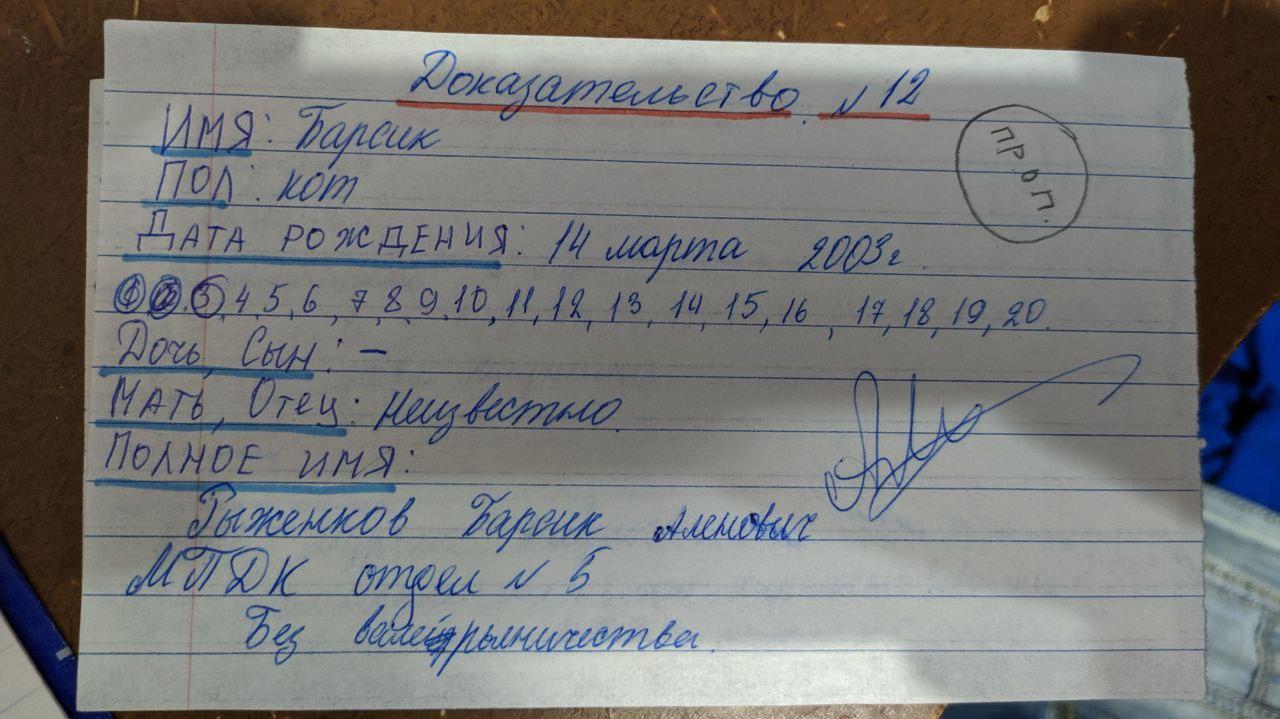 Доказательство. N 12
ИМЯ: Барсик
ПРОП.
ПОЛ: кот
ДАТА РОЖДЕНИЯ: 14 марта 2003г.
1, 2, 3, 4, 5, 6, 7, 8, 9, 10, 11, 12, 13, 14, 15, 16, 17, 18, 19, 20.
Дочь, Сын: –
Мать, Отец: Неизвестно.
ПОЛНОЕ ИМЯ:
Рыженков Барсик Аленович
МПДК отдел N 5
Без